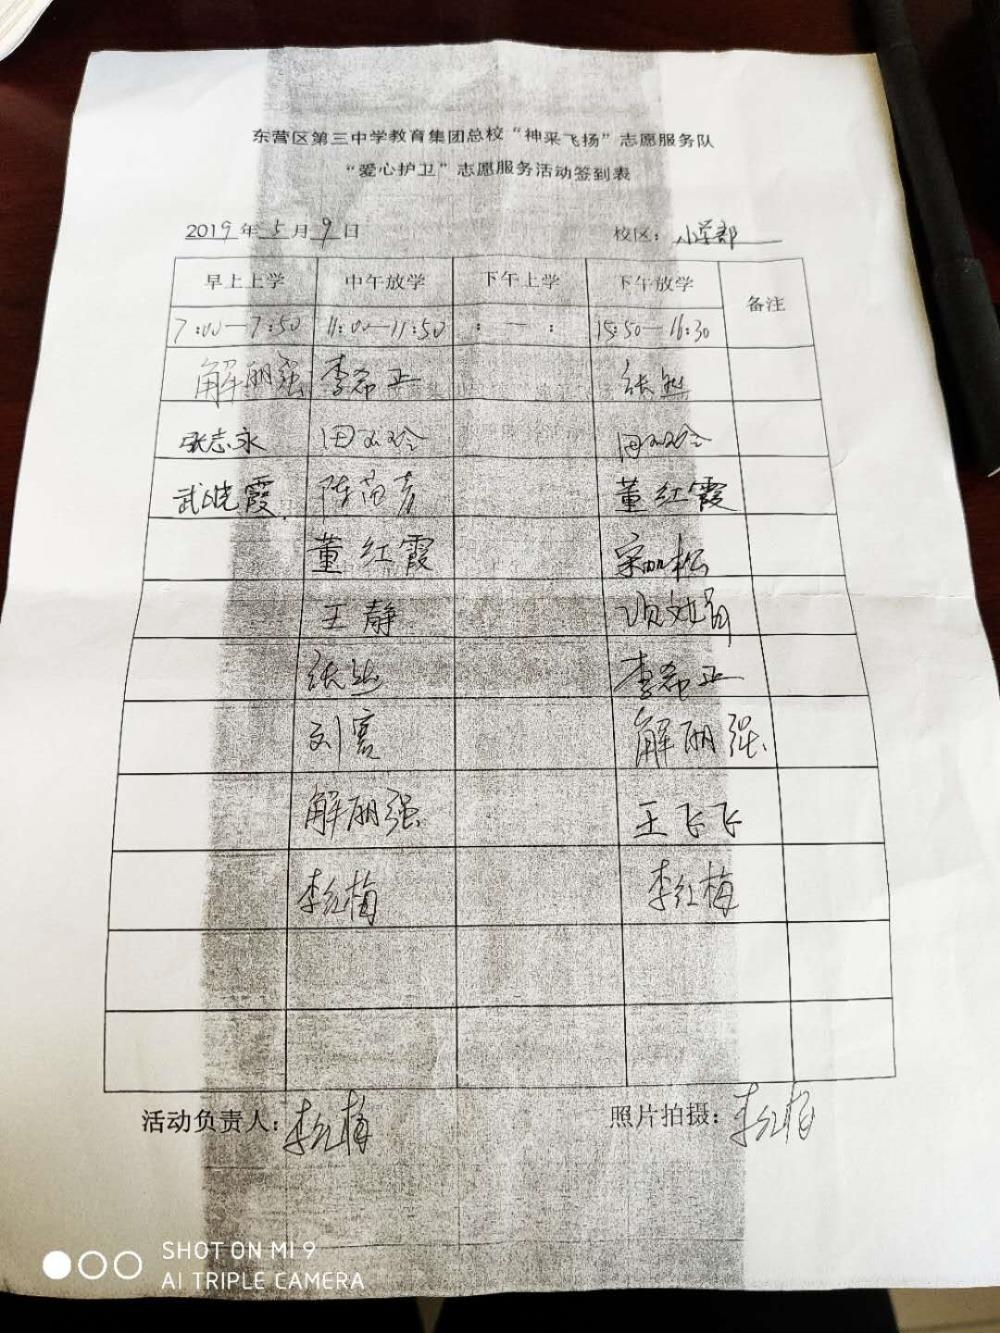 东营区第三中学教育集团总校“神采飞扬”志愿服务队
“爱心护卫”志愿服务活动签到表
2019年5月9日 校区：小学部
早上上学 中午放学 下午上学 下午放学 备注
7:00—7:50 11:00—11:50 : — : 15:50—16:30
解丽强 李希正 张燕
张志永 田双玲 田双玲
武晓霞 陈苗彦 董红霞
董红霞 宋加松
王静
张燕 李希正
刘寰 解丽强
解丽强 王飞飞
李红梅 李红梅
活动负责人：李红梅 照片拍摄：李红梅
SHOT ON MI 9
AI TRIPLE CAMERA